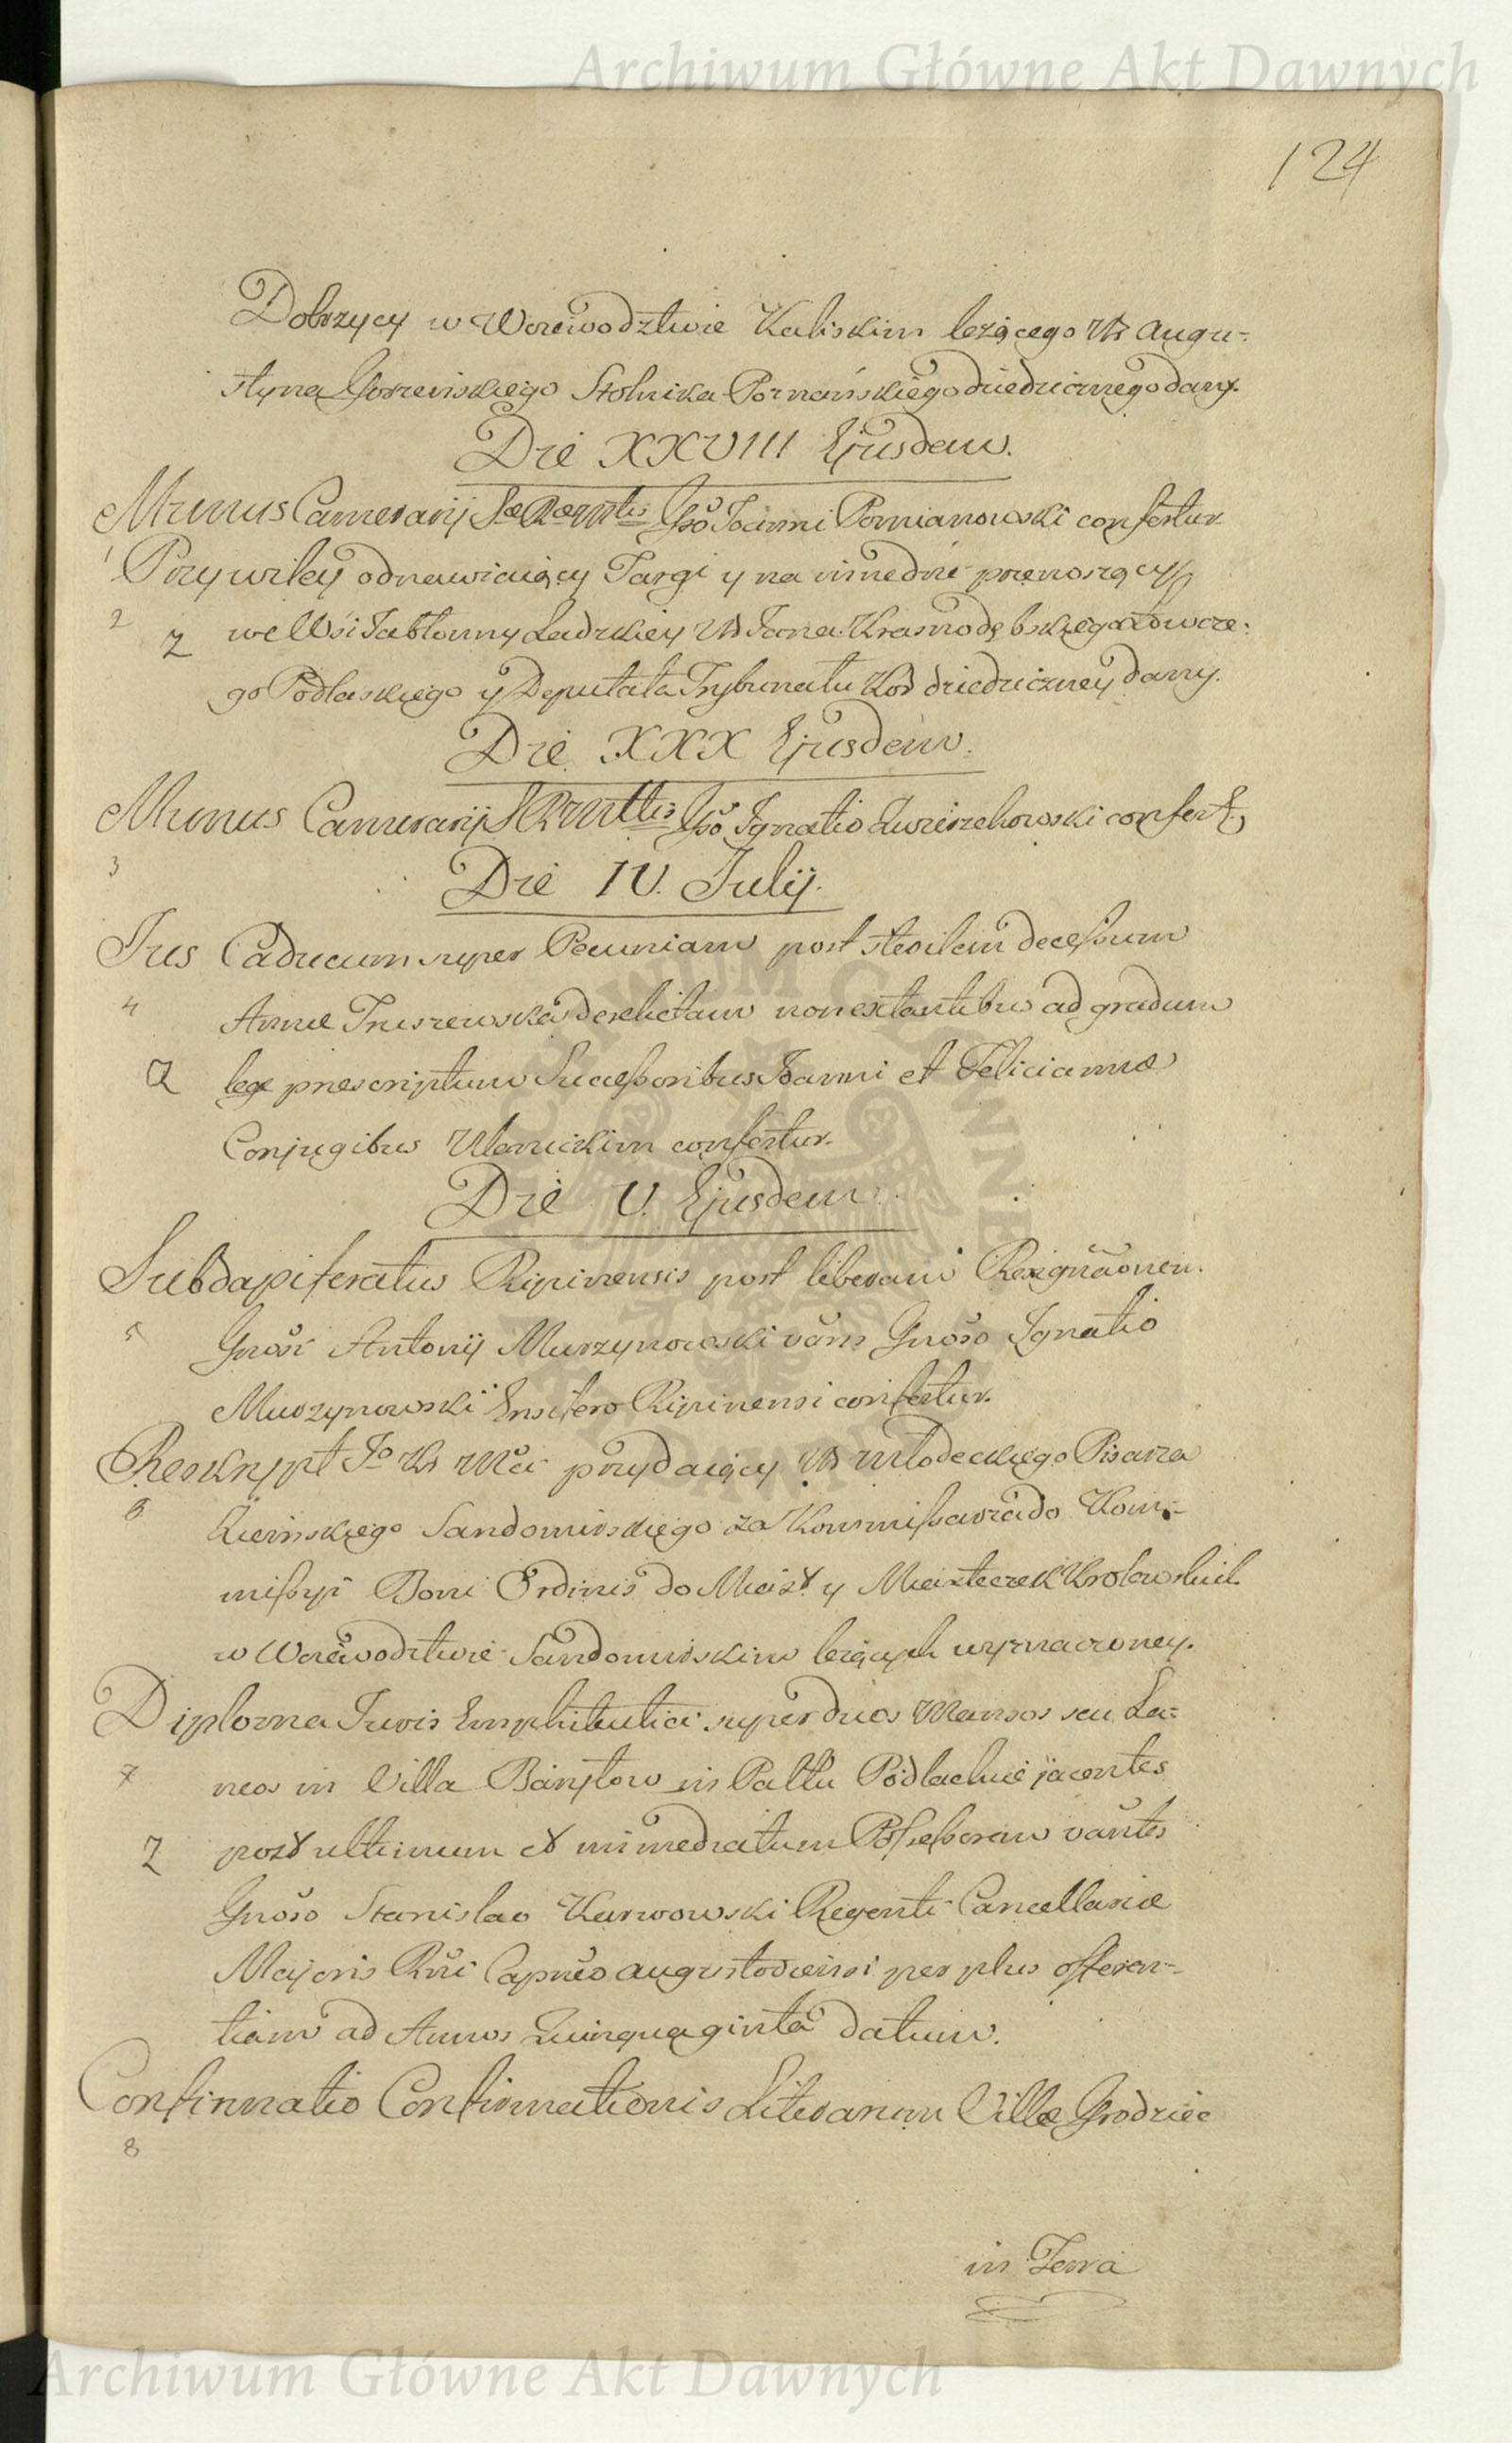 Archiwum Główne Akt Dawnych
124
Dobrzycy w Woiewodztwie Kaliskim leżącego Ur Augu-
styna Gorzeńskiego Stolnika Poznańskiego dziedzicznego dany.
Die XXVIII Ejusdem.
Munus Camerarij Sæ Ræ Mttis Gso Joanni Pomianowski confertur
1
Przywiley odnawiaiący Targi y na inne dni przenoszący
2
we Wsi Jabłonny Ladzkiey Ur Jana Krasnodębskiego Łowcze-
2
go Podlaskiego y Deputata Trybunatu Kor dziedziczney dany.
Die XXX Ejusdem.
Munus Camerarij S R Mttis Gso Ignatio confert
3
Die IV. Julij.
Jus Caducum super Pecuniam post sterilem decessum
4
Annæ Truszewska derelictam non extantibus ad gradum
2
lege præscriptum Successoribus Joanni et Felicianna
Conjugibus confertur.
Die V. Ejusdem.
Subdapiferatus Ripinensis post liberam Resignãonem.
5
Gnosi Antonij Murzynowski vãns Gnoso Ignatio
Murzynowski Ensifero Ripinensi confertur.
Reskrypt Jo Kr Mci przydaiący Ur Młodeckiego Pisarza
6
Ziemskiego Sandomirskiego za Kommissarza do Kom-
missyi Boni Ordinis do Miast y Miasteczek Krolewskich
w Woiewodztwie Sandomirskim leżących wyznaczoney.
Diploma Juris Emphiteutici super duos Mansos seu La-
7
neos in Villa in Pallu Podlachiæ jacentes
2
post ultimum et immediatum Possessorem vãntes
Gnoso Stanislao Karwowski Regenti Cancellariæ
Majoris Rni Capneo Augustoviensi per plus offeren-
tiam ad Annos Quinquaginta datum.
Confirmatio Confirmationis Literarum Villæ Grodziec
8
in Terra
Archiwum Główne Akt Dawnych